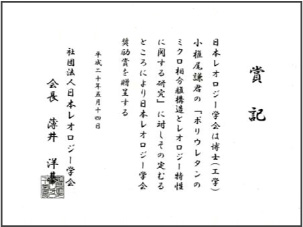 賞記
日本レオロジー学会は博士(工学)
小椎尾謙君の「ポリウレタンの
ミクロ相分離構造とレオロジー特性
に関する研究」に対しその定むる
ところにより日本レオロジー学会
奨励賞を贈呈する
平成二十年五月十四日
社団法人日本レオロジー学会
会長 薄井 洋基